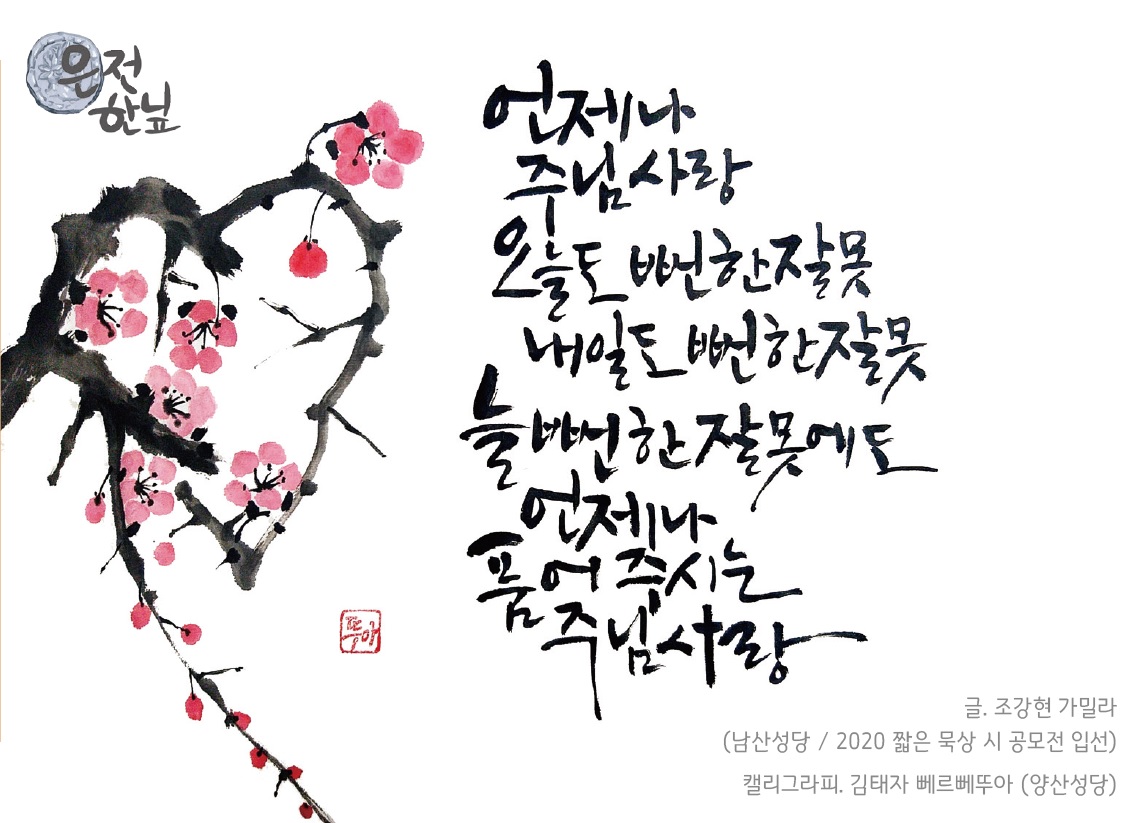 은전
한닢
언제나
주님 사랑
오늘도 뻔한 잘못
내일도 뻔한 잘못
늘 뻔한 잘못에도
언제나
품어 주시는
주님 사랑
뚜아
글. 조강현 가밀라
(남산성당 / 2020 짧은 묵상 시 공모전 입선)
캘리그라피. 김태자 뻬르뻬뚜아 (양산성당)